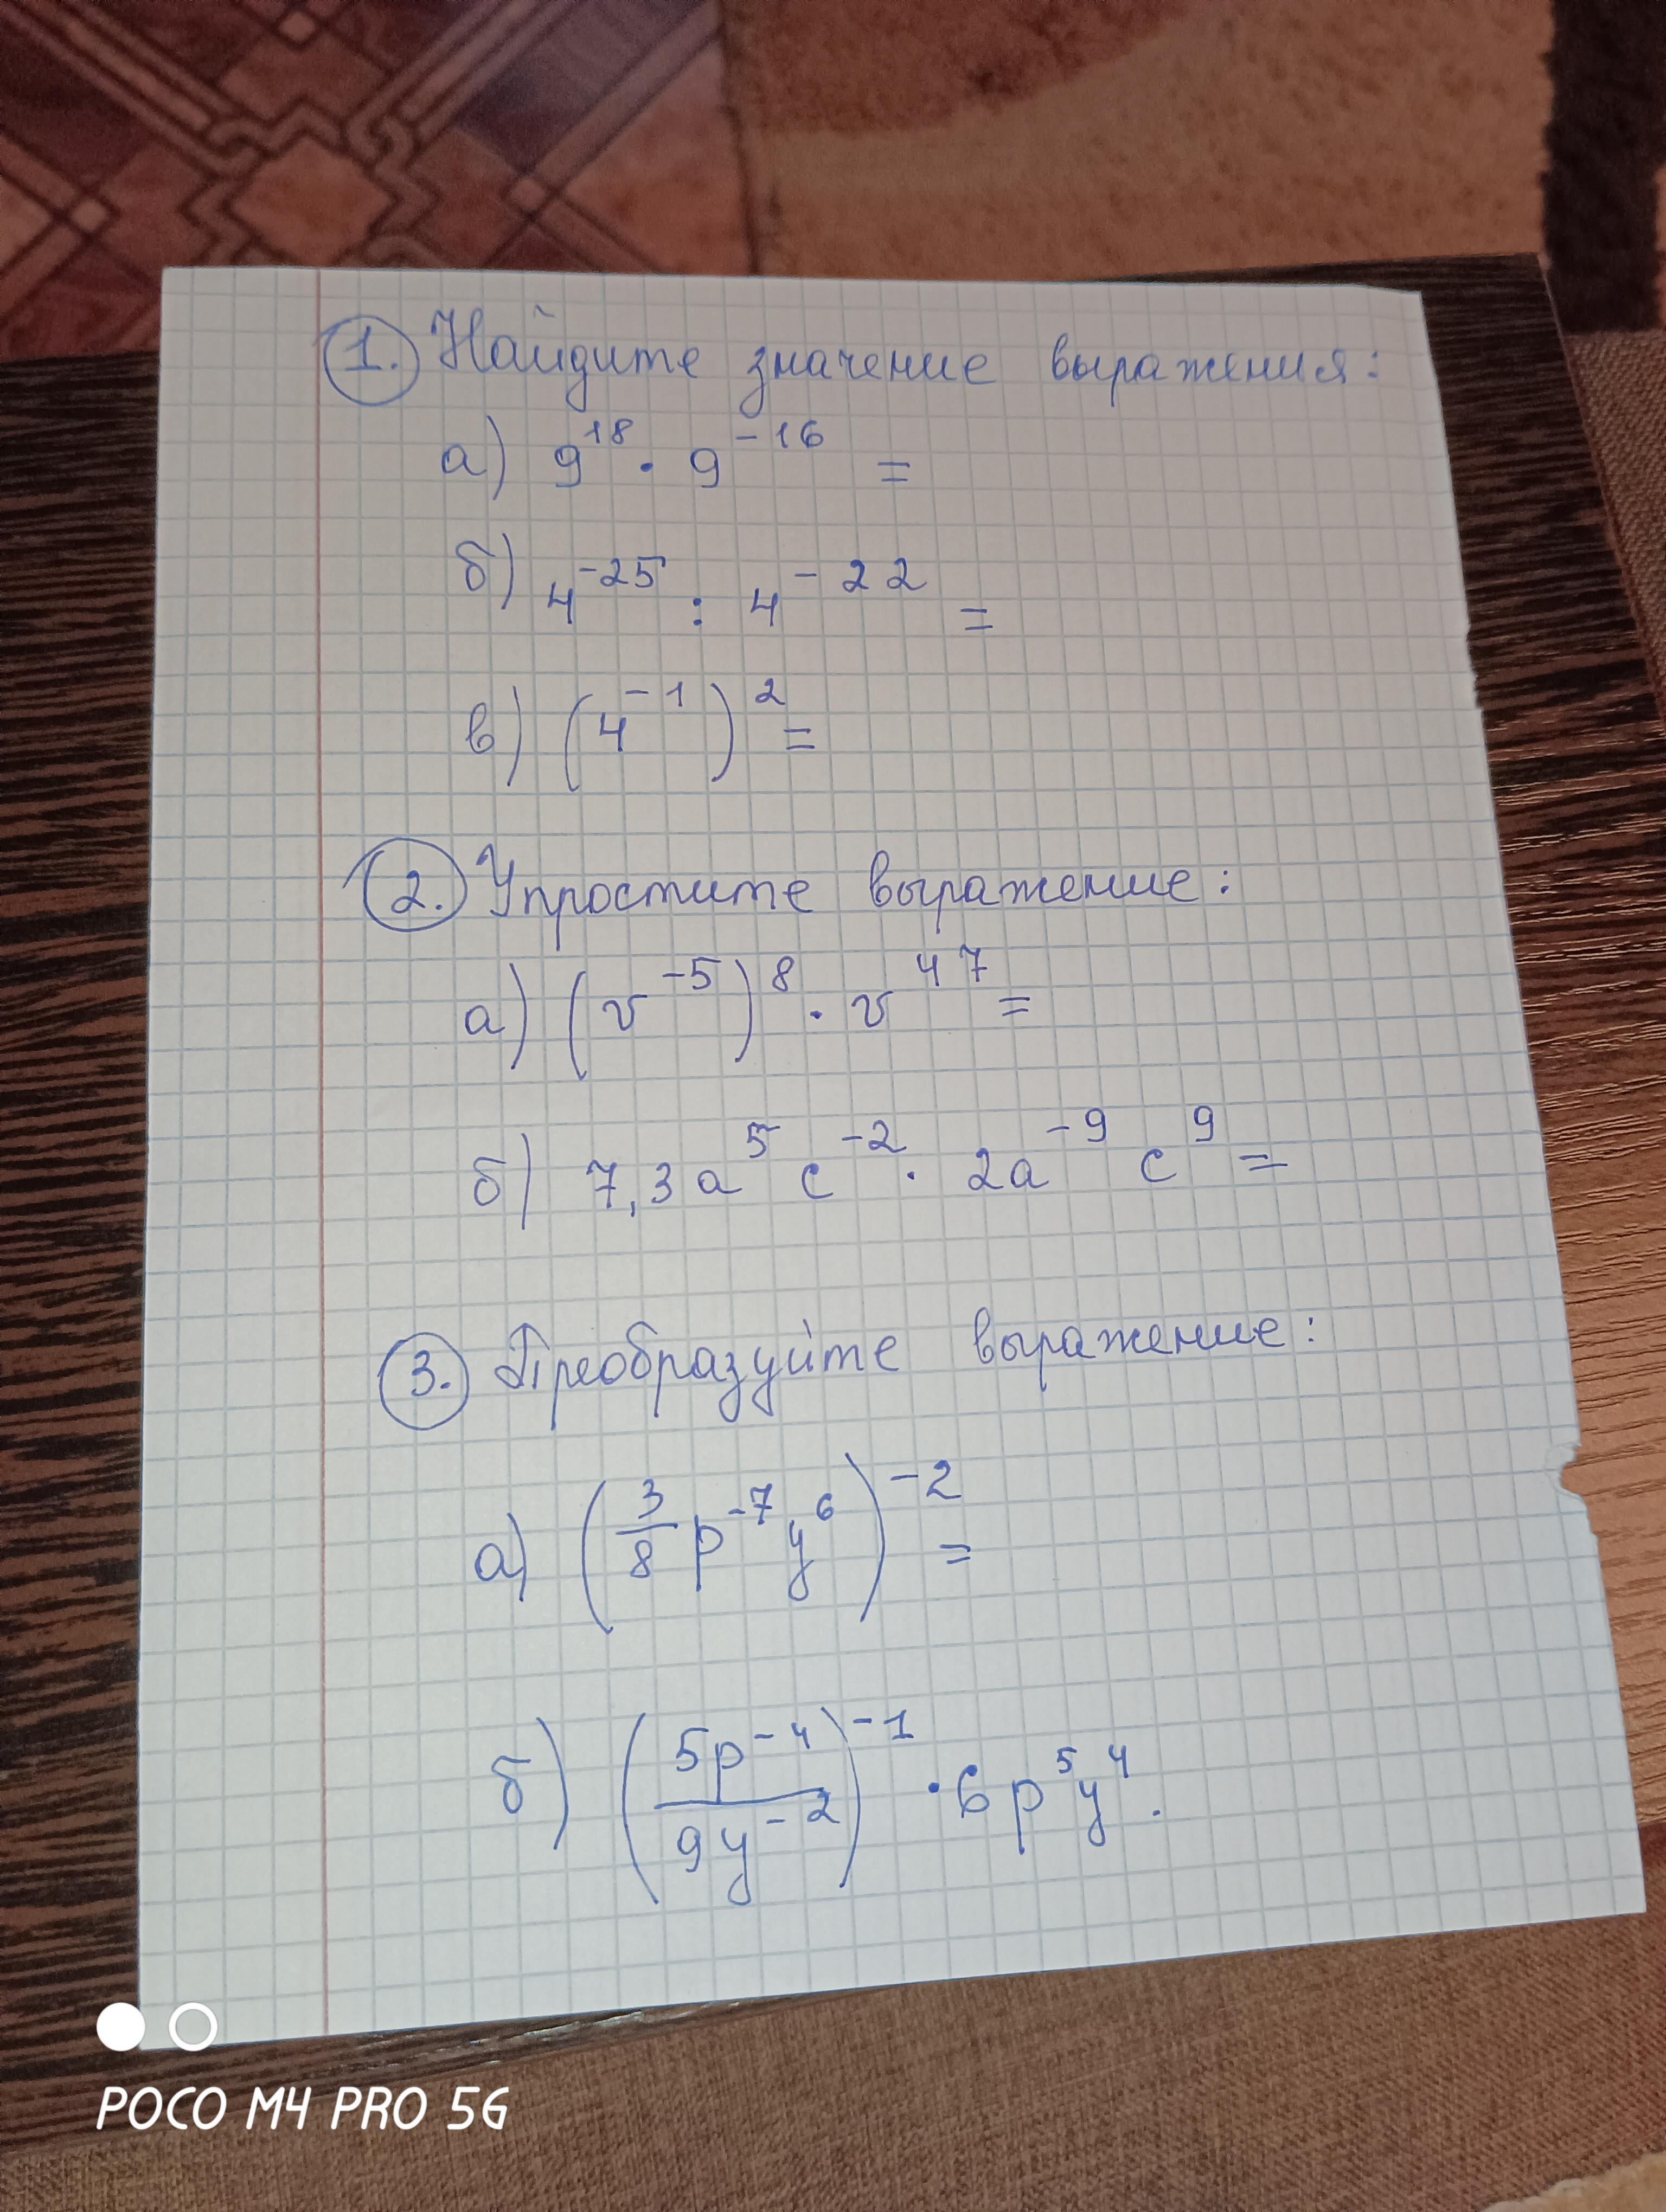 1. Найдите значение выражения:
а) 9^18 · 9^-16 =
б) 4^-25 : 4^-22 =
в) (4^-1)^2 =
2. Упростите выражение:
а) (v^-5)^8 · v^47 =
б) 7,3a^5 c^-2 · 2a^-9 c^9 =
3. Преобразуйте выражение:
а) (3/8 p^-7 y^6)^-2 =
б) (5p^-4 / 9y^-2)^-1 · 6p^5 y^4.
POCO M4 PRO 5G